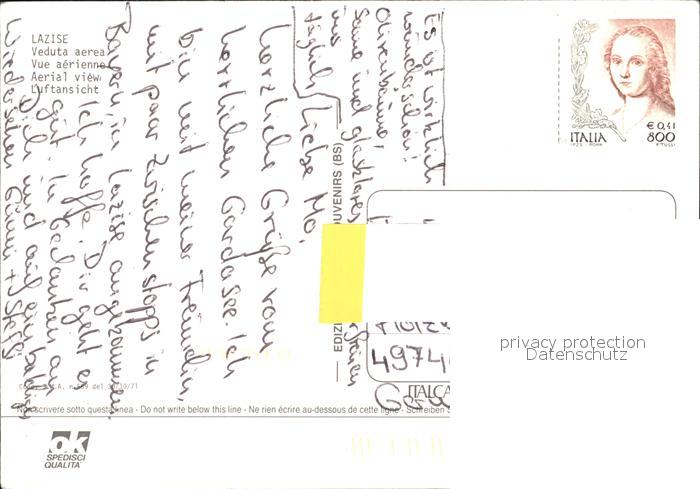 LAZISE
Veduta aerea
Vue aérienne
Aerial view
Luftansicht
Liebe Mo,
herzliche Grüße vom
herrlichen Gardasee. Ich
bin mit meiner Freundin,
mit paar Zwischenstopps in
Bayern, in Lazise angekommen.
Ich hoffe, Dir geht es
gut. In Gedanken an
Dich und auf ein baldiges
Wiedersehen
+ Steffi
Es ist wirklich
wunderschön!
Olivenbäume,
Sonne und glasklares
täglich
ITALIA
€ 0,41
800
EDIZI
OUVENIRS (BS)
4974
ITALCA
Non scrivere sotto questa linea - Do not write below this line - Ne rien écrire au-dessous de cette ligne - Schreiben
ok
SPEDISCI
QUALITA'
privacy protection
Datenschutz